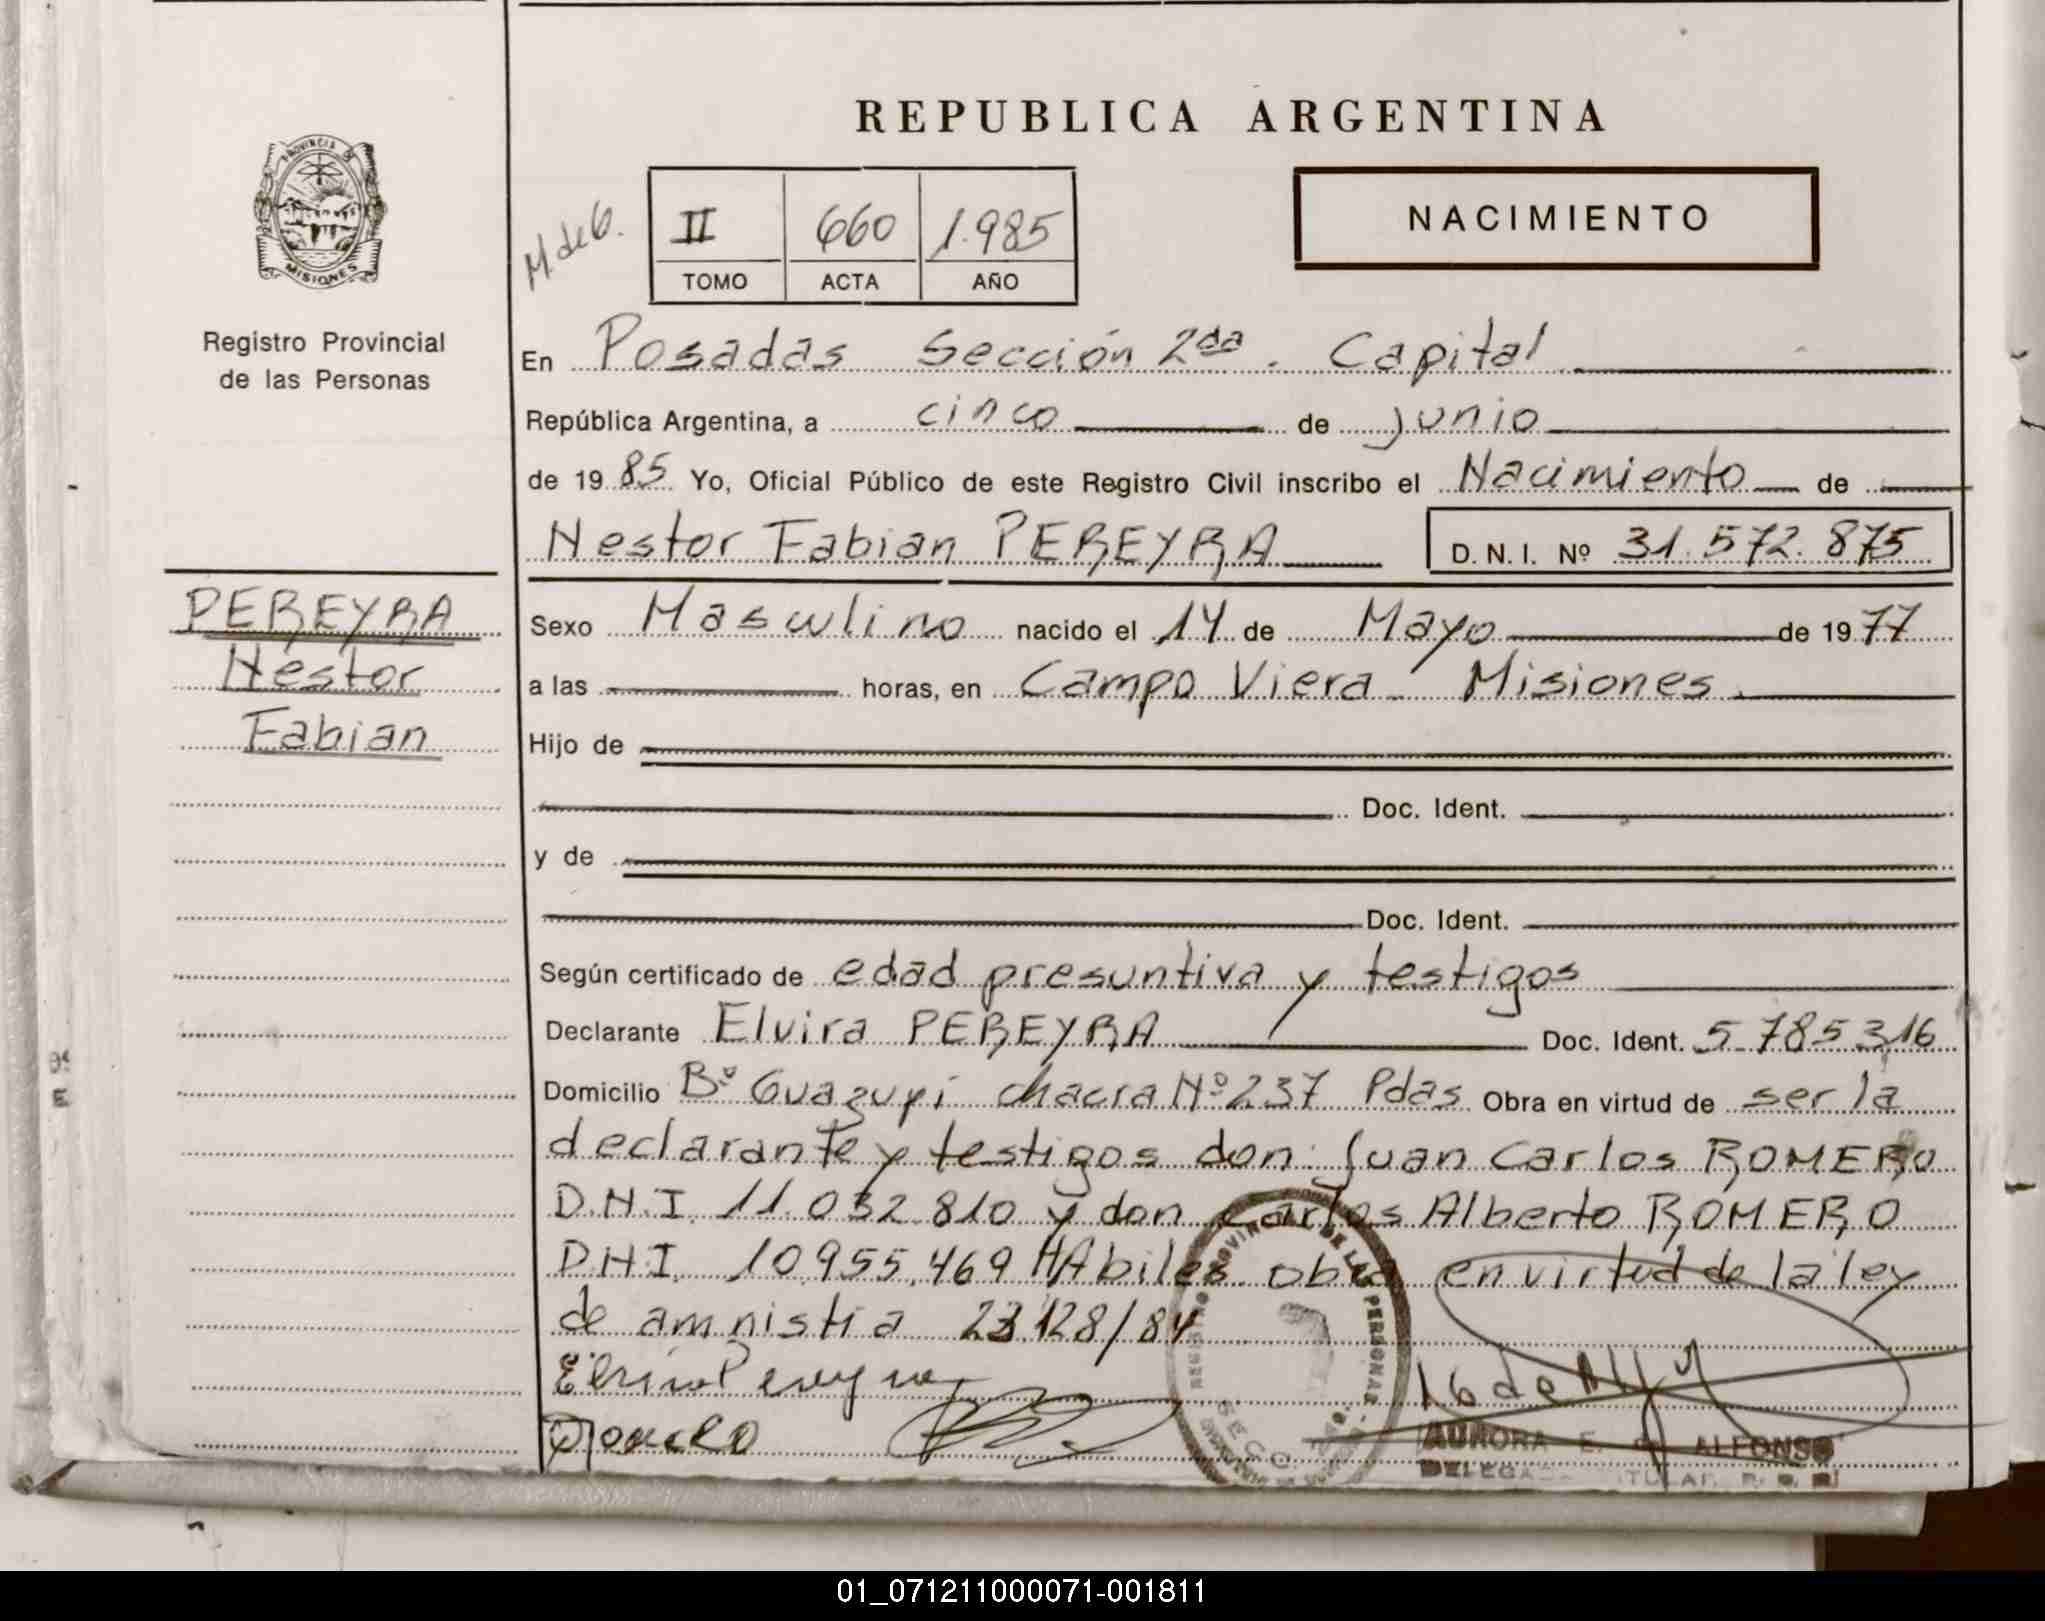 REPUBLICA ARGENTINA
PROVINCIA DE
MISIONES
Registro Provincial
de las Personas
M. de G.
II 660 1.985
TOMO ACTA AÑO
NACIMIENTO
En Posadas Sección 2da. Capital
República Argentina, a cinco de junio
de 19 85 Yo, Oficial Público de este Registro Civil inscribo el Nacimiento de
Nestor Fabian PEREYRA D. N. I. Nº 31.572.875
PEREYRA
Nestor
Fabian
Sexo Masculino nacido el 14 de Mayo de 19 77
a las horas, en Campo Viera Misiones.
Hijo de
Doc. Ident.
y de
Doc. Ident.
Según certificado de edad presuntiva y testigos
Declarante Elvira PEREYRA Doc. Ident. 5.785.316
Domicilio Bº Guazupi chacra Nº 237 Pdas Obra en virtud de ser la
declarante y testigos don: Juan Carlos ROMERO
D.N.I. 11.032.810 y don Carlos Alberto ROMERO
D.N.I. 10.955.469 HAbiles obra en virtud de la ley
de amnistia 23.128/84
Elvira Pereyra
AURORA E. ALFONSO
01_071211000071-001811